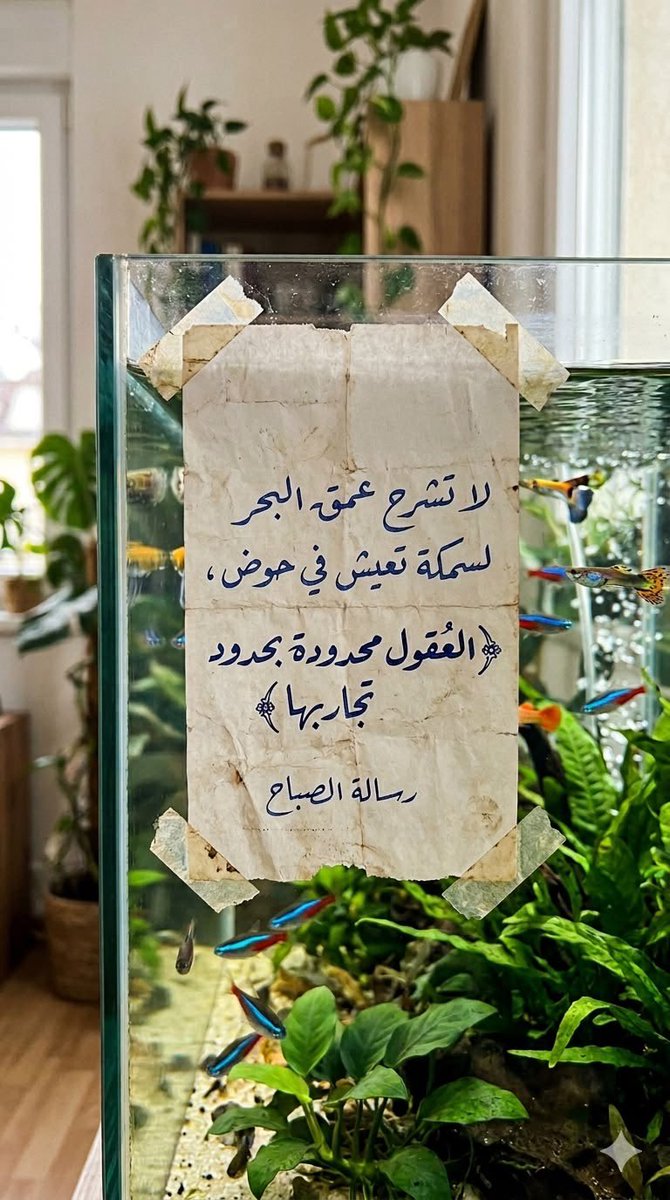 لا تشرح عمق البحر
لسمكة تعيش في حوض،
﴿العُقول محدودة بحدود
تجاربها﴾
رسالة الصباح